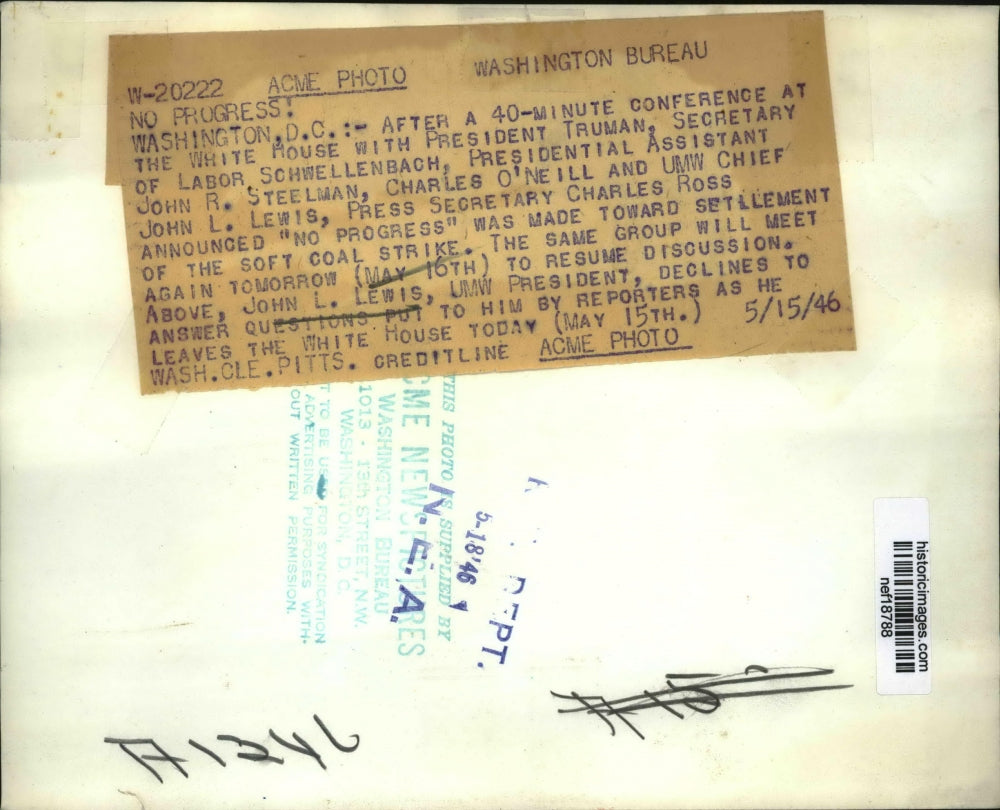 W-20222 ACME PHOTO WASHINGTON BUREAU
NO PROGRESS!
WASHINGTON,D.C.:- AFTER A 40-MINUTE CONFERENCE AT
THE WHITE HOUSE WITH PRESIDENT TRUMAN, SECRETARY
OF LABOR SCHWELLENBACH, PRESIDENTIAL ASSISTANT
JOHN R. STEELMAN, CHARLES O'NEILL AND UMW CHIEF
JOHN L. LEWIS, PRESS SECRETARY CHARLES ROSS
ANNOUNCED "NO PROGRESS" WAS MADE TOWARD SETLLEMENT
OF THE SOFT COAL STRIKE. THE SAME GROUP WILL MEET
AGAIN TOMORROW (MAY 16TH) TO RESUME DISCUSSION.
ABOVE, JOHN L. LEWIS, UMW PRESIDENT, DECLINES TO
ANSWER QUESTIONS PUT TO HIM BY REPORTERS AS HE
LEAVES THE WHITE HOUSE TODAY (MAY 15TH.) 5/15/46
WASH.CLE.PITTS. CREDITLINE ACME PHOTO
THIS PHOTO IS SUPPLIED BY
ACME NEWSPICTURES
WASHINGTON BUREAU
1013 - 13th STREET, N.W.
WASHINGTON, D. C.
T TO BE USED FOR SYNDICATION
ADVERTISING PURPOSES WITH-
OUT WRITTEN PERMISSION.
N.E.A.
5-18'46
DEPT.
historicimages.com
nef18788